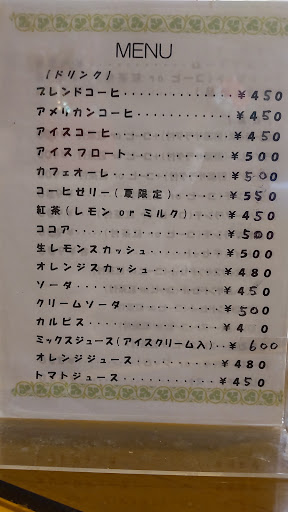 MENU
[ドリンク]
ブレンドコーヒ・・・・・・・・・・・・¥450
アメリカンコーヒ・・・・・・・・・・¥450
アイスコーヒ・・・・・・・・・・・・・¥450
アイスフロート・・・・・・・・・・・¥500
カフェオーレ・・・・・・・・・・・・・¥500
コーヒゼリー(夏限定)・・・・・・¥550
紅茶(レモン or ミルク)・・・・・¥450
ココア・・・・・・・・・・・・・・・・・・¥500
生レモンスカッシュ・・・・・・・・¥500
オレンジスカッシュ・・・・・・・・¥480
ソーダ・・・・・・・・・・・・・・・・・・¥450
クリームソーダ・・・・・・・・・・・¥500
カルピス・・・・・・・・・・・・・・・・¥
ミックスジュース(アイスクリーム入)・・¥600
オレンジジュース・・・・・・・・・・¥480
トマトジュース・・・・・・・・・・・・¥450